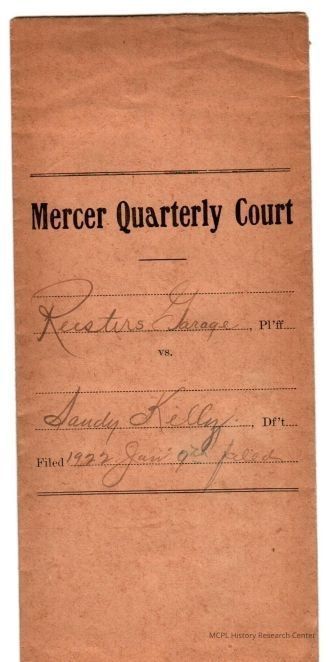 Mercer Quarterly Court
Reisters Garage, Pl'ff.
vs.
Sandy Kelly, Df't.
Filed 1922 Jan 9th filed
MCPL History Research Center